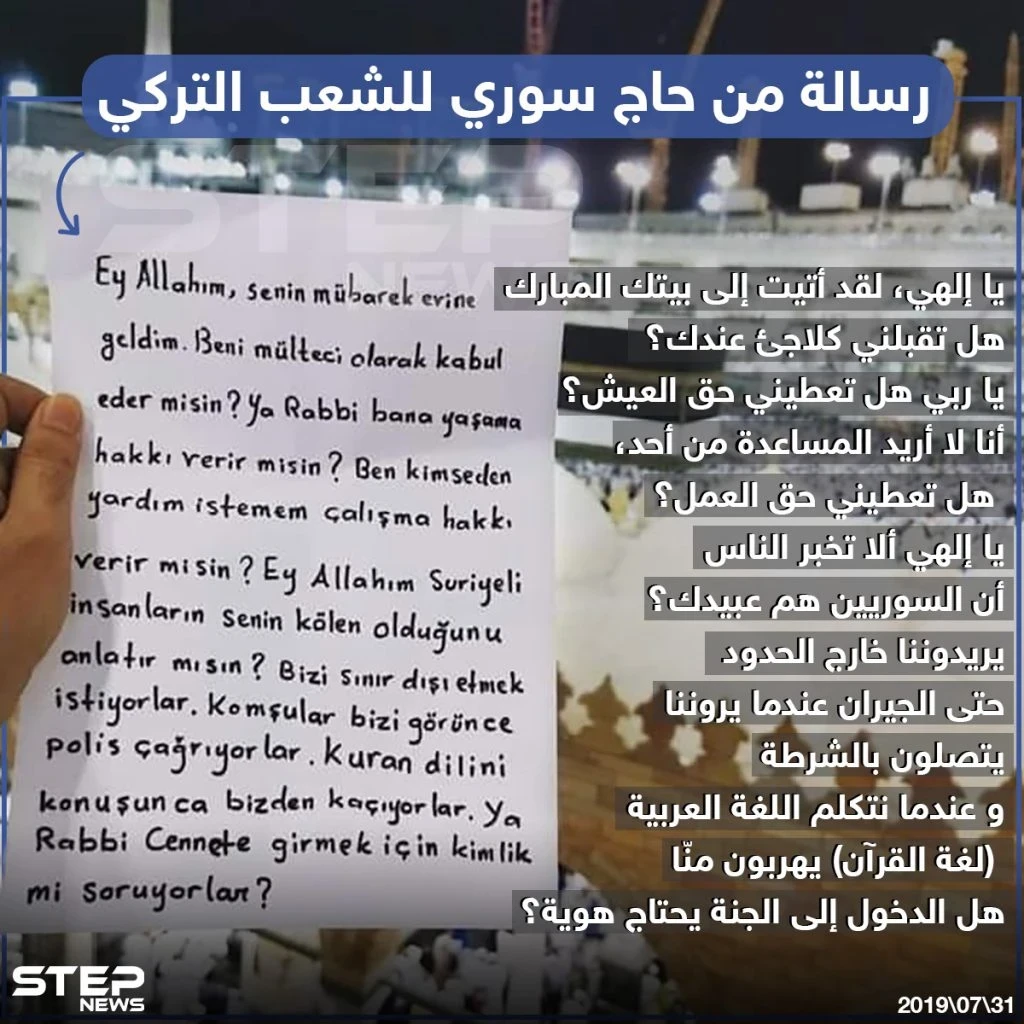 رسالة من حاج سوري للشعب التركي
STEP
NEWS
Ey Allahım, senin mübarek evine
geldim. Beni mülteci olarak kabul
eder misin? Ya Rabbi bana yaşama
hakkı verir misin? Ben kimseden
yardım istemem çalışma hakkı
verir misin? Ey Allahım Suriyeli
insanların senin kölen olduğunu
anlatır mısın? Bizi sınır dışı etmek
istiyorlar. Komşular bizi görünce
polis çağrıyorlar. Kuran dilini
konuşunca bizden kaçıyorlar. Ya
Rabbi Cennete girmek için kimlik
mi soruyorlar?
يا إلهي، لقد أتيت إلى بيتك المبارك
هل تقبلني كلاجئ عندك؟
يا ربي هل تعطيني حق العيش؟
أنا لا أريد المساعدة من أحد،
هل تعطيني حق العمل؟
يا إلهي ألا تخبر الناس
أن السوريين هم عبيدك؟
يريدوننا خارج الحدود
حتى الجيران عندما يروننا
يتصلون بالشرطة
و عندما نتكلم اللغة العربية
(لغة القرآن) يهربون منّا
هل الدخول إلى الجنة يحتاج هوية؟
STEP
NEWS
2019\07\31